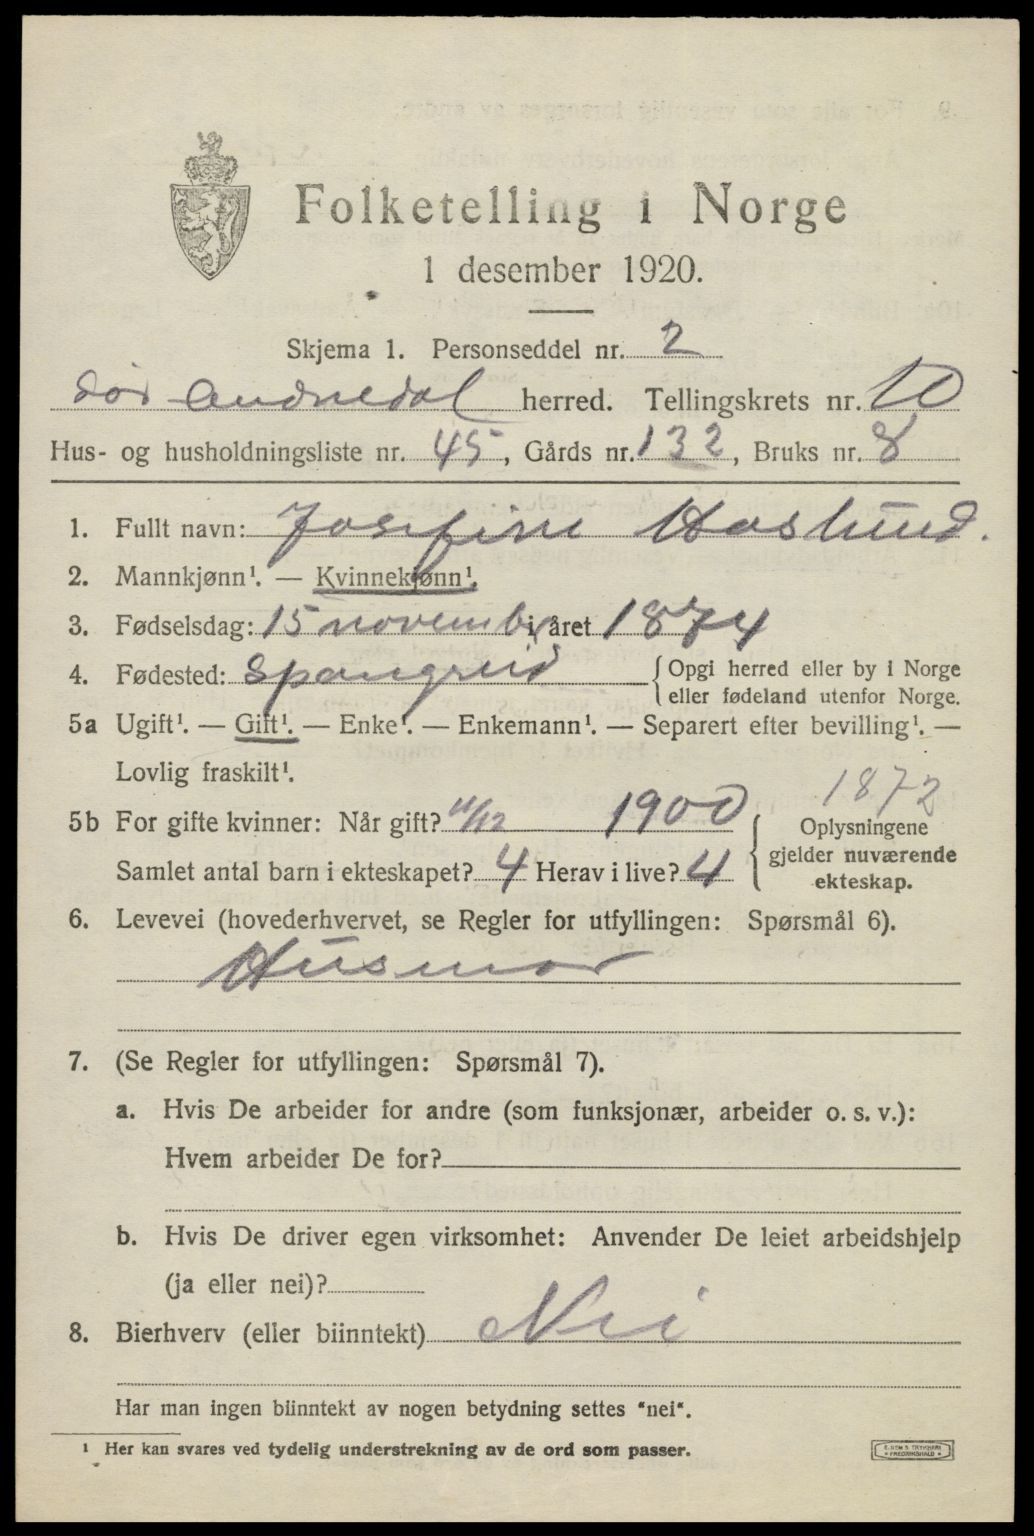 Folketelling i Norge
1 desember 1920.
Skjema 1. Personseddel nr. 2
Sør Audnedal herred. Tellingskrets nr. 10
Hus- og husholdningsliste nr. 45, Gårds nr. 132, Bruks nr. 8
1. Fullt navn: Josefine Haslund.
2. Mannkjønn¹. — Kvinnekjønn¹.
3. Fødselsdag: 15 november i året 1874
4. Fødested: Spangreid { Opgi herred eller by i Norge
eller fødeland utenfor Norge.
5a Ugift¹. — Gift¹. — Enke¹. — Enkemann¹. — Separert efter bevilling¹. —
Lovlig fraskilt¹.
1872
5b For gifte kvinner: Når gift? 11/12 1900
Oplysningene
gjelder nuværende
ekteskap.
Samlet antal barn i ekteskapet? 4 Herav i live? 4
6. Levevei (hovederhvervet, se Regler for utfyllingen: Spørsmål 6).
Husmor
7. (Se Regler for utfyllingen: Spørsmål 7).
a. Hvis De arbeider for andre (som funksjonær, arbeider o. s. v.):
Hvem arbeider De for?
b. Hvis De driver egen virksomhet: Anvender De leiet arbeidshjelp
(ja eller nei)?
8. Bierhverv (eller biinntekt) Nei
Har man ingen biinntekt av nogen betydning settes "nei".
¹ Her kan svares ved tydelig understrekning av de ord som passer.